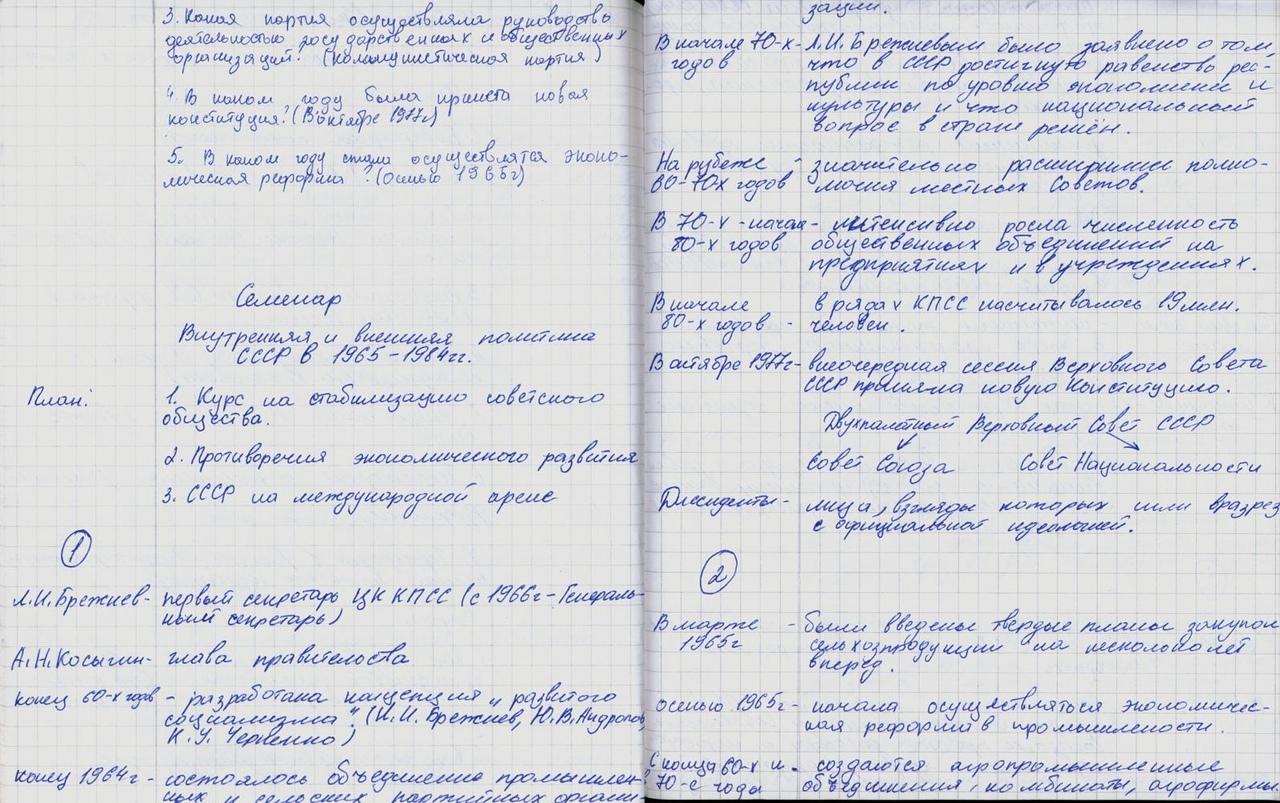 3. Какая партия осуществляла руководство
деятельностью государственных и общественных
организаций? (коммунистическая партия)
4. В каком году была принята новая
конституция? (В октябре 1977г)
5. В каком году стала осуществлятся эконо-
мическая реформа? (осенью 1965г)
Семенар
Внутренняя и внешняя политика
СССР в 1965-1984гг.
План:
1. Курс на стабилизацию советского
общества.
2. Противоречия экономического развития
3. СССР на международной арене
1
Л.И.Брежнев- первый секретарь ЦК КПСС (с 1966г-Генераль-
ный секретарь)
А.Н.Косыгин- глава правительства
конец 60-х годов - разработана концепция „развитого
социализма" (Л.И. Брежнев, Ю.В.Андропов,
К.У. Черненко)
конец 1964г- состоялось объединение промышлен-
ных и сельских партийных органи-
зации.
В начале 70-х- Л.И. Брежневым было заявлено о том,
годов что в СССР достигнуто равенство рес-
публик по уровню экономики и
культуры и что национальный
вопрос в стране решён.
На рубеже - значительно расширились полно-
60-70х годов мочия местных Советов.
В 70-х - начале - интенсивно росла численность
80-х годов общественных объединений на
предприятиях и в учреждениях.
В начале в рядах КПСС насчитывалось 19 млн.
80-х годов - человек.
В октябре 1977г- внеочередная сессия Верховного Совета
СССР приняла новую Конституцию.
Двухпалатный Верховный Совет СССР
Совет Союза Совет Национальности
Диссиденты- лица, взгляды которых шли вразрез
с официальной идеологией.
2
В марте - были введены твердые планы закупок
1965г сельхозпродукции на несколько лет
вперед.
осенью 1965г- начала осуществляться экономичес-
кая реформа в промышлености.
С конца 60-х и - создаются агропромышленные
70-е годы объединения, комбинаты, агрофирмы